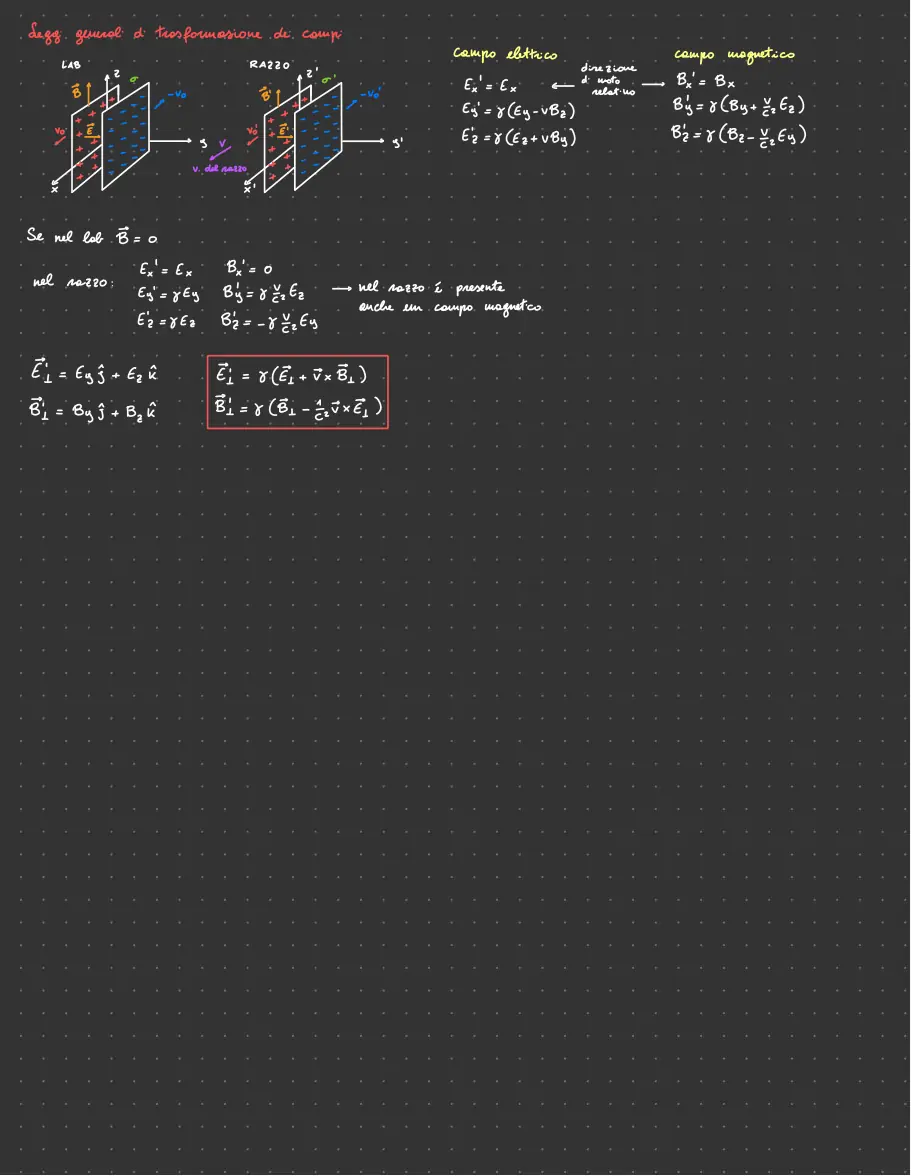 Leggi generali di trasformazione dei campi
LAB
RAZZO
z
σ
B⃗
-v₀
v₀
E⃗
y
x
z'
σ'
B⃗'
-v₀'
v₀'
E⃗'
y'
x'
v
v. del razzo
campo elettrico
Ex' = Ex
Ey' = γ(Ey - vBz)
Ez' = γ(Ez + vBy)
direzione
di moto
relativo
campo magnetico
Bx' = Bx
By' = γ(By + v/c² Ez)
Bz' = γ(Bz - v/c² Ey)
Se nel lab B⃗ = 0
nel razzo:
Ex' = Ex Bx' = 0
Ey' = γEy By' = γ v/c² Ez
Ez' = γEz Bz' = -γ v/c² Ey
→ nel razzo è presente
anche un campo magnetico
E⃗⊥' = Ey ĵ + Ez k̂
B⃗⊥' = By ĵ + Bz k̂
E⃗⊥' = γ(E⃗⊥ + v⃗ × B⃗⊥)
B⃗⊥' = γ(B⃗⊥ - 1/c² v⃗ × E⃗⊥)